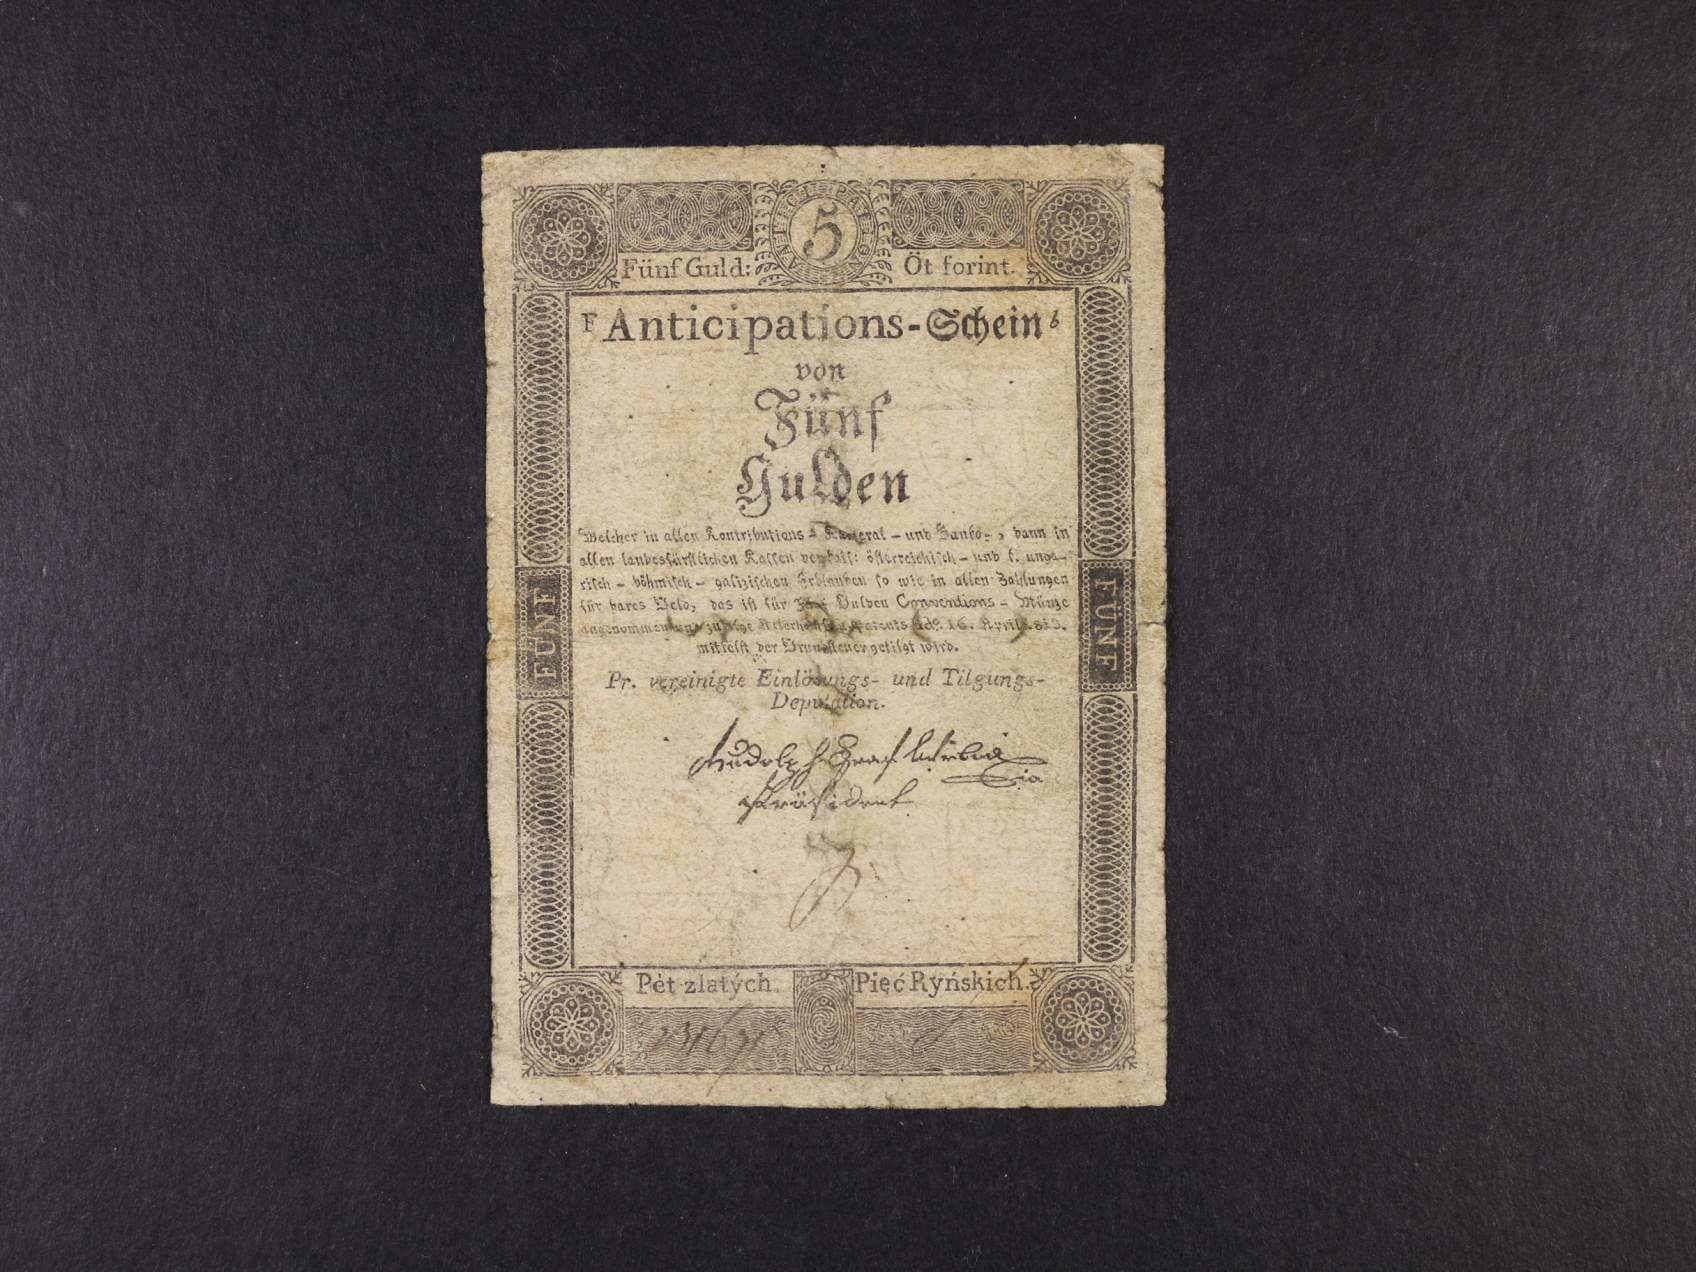 5
Fünf Guld: Öt forint.
F Anticipations-Schein b
von
Fünf
Gulden
Welcher in allen Kontributions- Kameral- und Banko-, dann in
allen landesfürstlichen Kassen der kais: österreichisch- und k. unga-
risch-böhmisch-galizischen Erblanden so wie in allen Zahlungen
für bares Geld, das ist für Fünf Gulden Conventions-Münze
angenommen und zu Folge Allerhöchsten Patents ddo. 16. April 813.
mittelst der Grundsteuer getilgt wird.
Pr. vereinigte Einlösungs- und Tilgungs-
Deputation.
Rudolph Graf Wrbna
Präsident
FÜNF
FÜNF
Pět zlatých. Pięć Ryńskich.